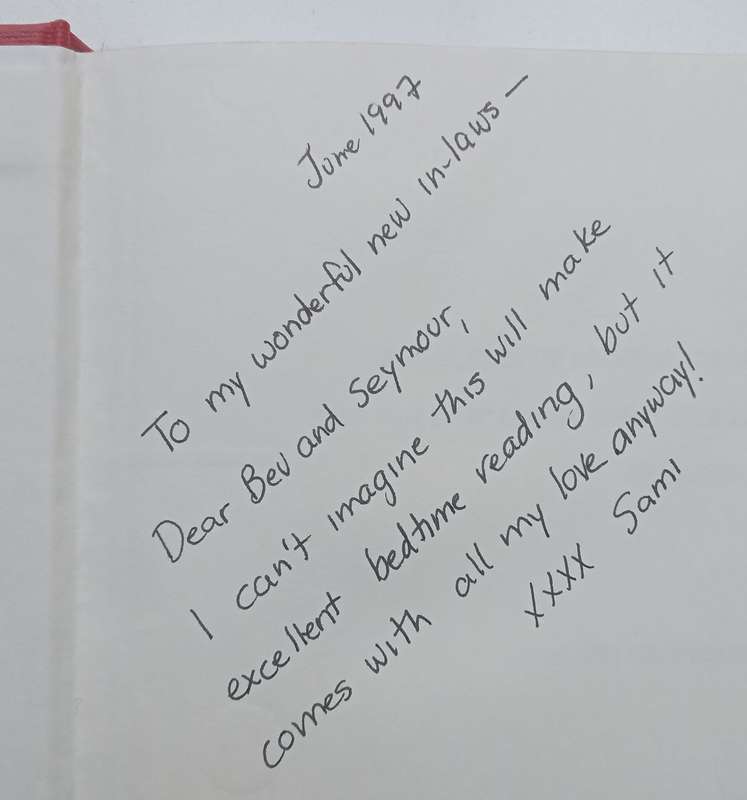 June 1997
To my wonderful new in-laws —
Dear Bev and Seymour,
I can't imagine this will make
excellent bedtime reading, but it
comes with all my love anyway!
xxxx Sami